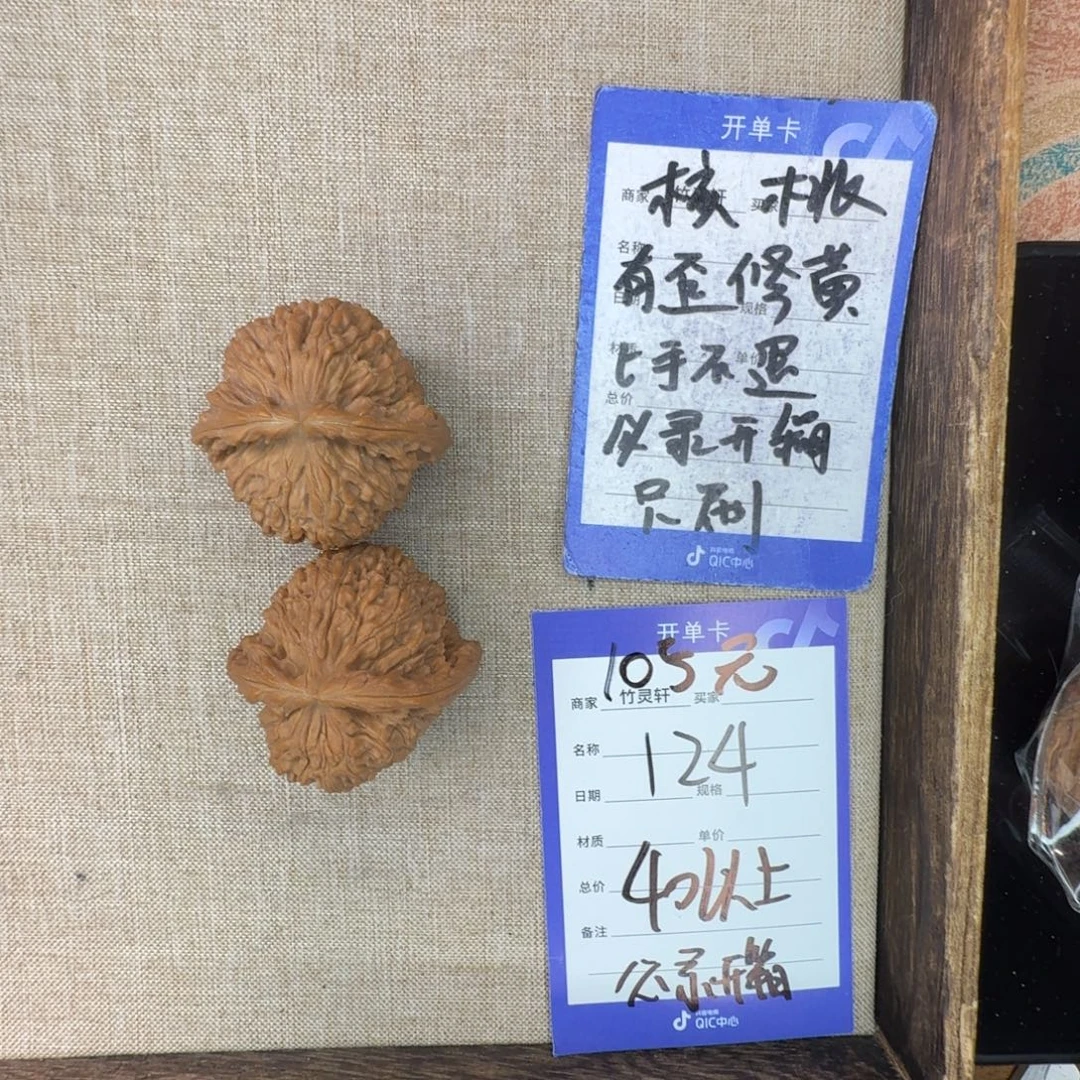 开单卡
核桃
商家 买家
名称
有歪修黄
日期 规格
上手不退
材质 单价
总价
必录开箱
只刷
抖音电商
QIC中心
开单卡
105元
商家 竹灵轩 买家
名称
124
日期 规格
材质 单价
40以上
总价
备注
必录开箱
抖音电商
QIC中心